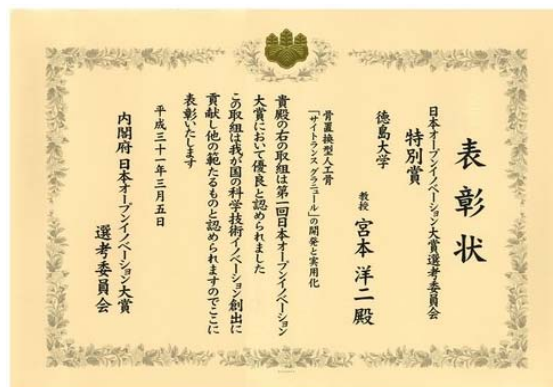 表彰状
日本オープンイノベーション大賞選考委員会
特別賞
徳島大学
教授 宮本 洋二 殿
骨置換型人工骨
「サイトランス グラニュール」の開発と実用化
貴殿の右の取組は第一回日本オープンイノベーション
大賞において優良と認められました
この取組は我が国の科学技術イノベーション創出に
貢献し他の範たるものと認められますのでここに
表彰いたします
平成三十一年三月五日
内閣府 日本オープンイノベーション大賞
選考委員会